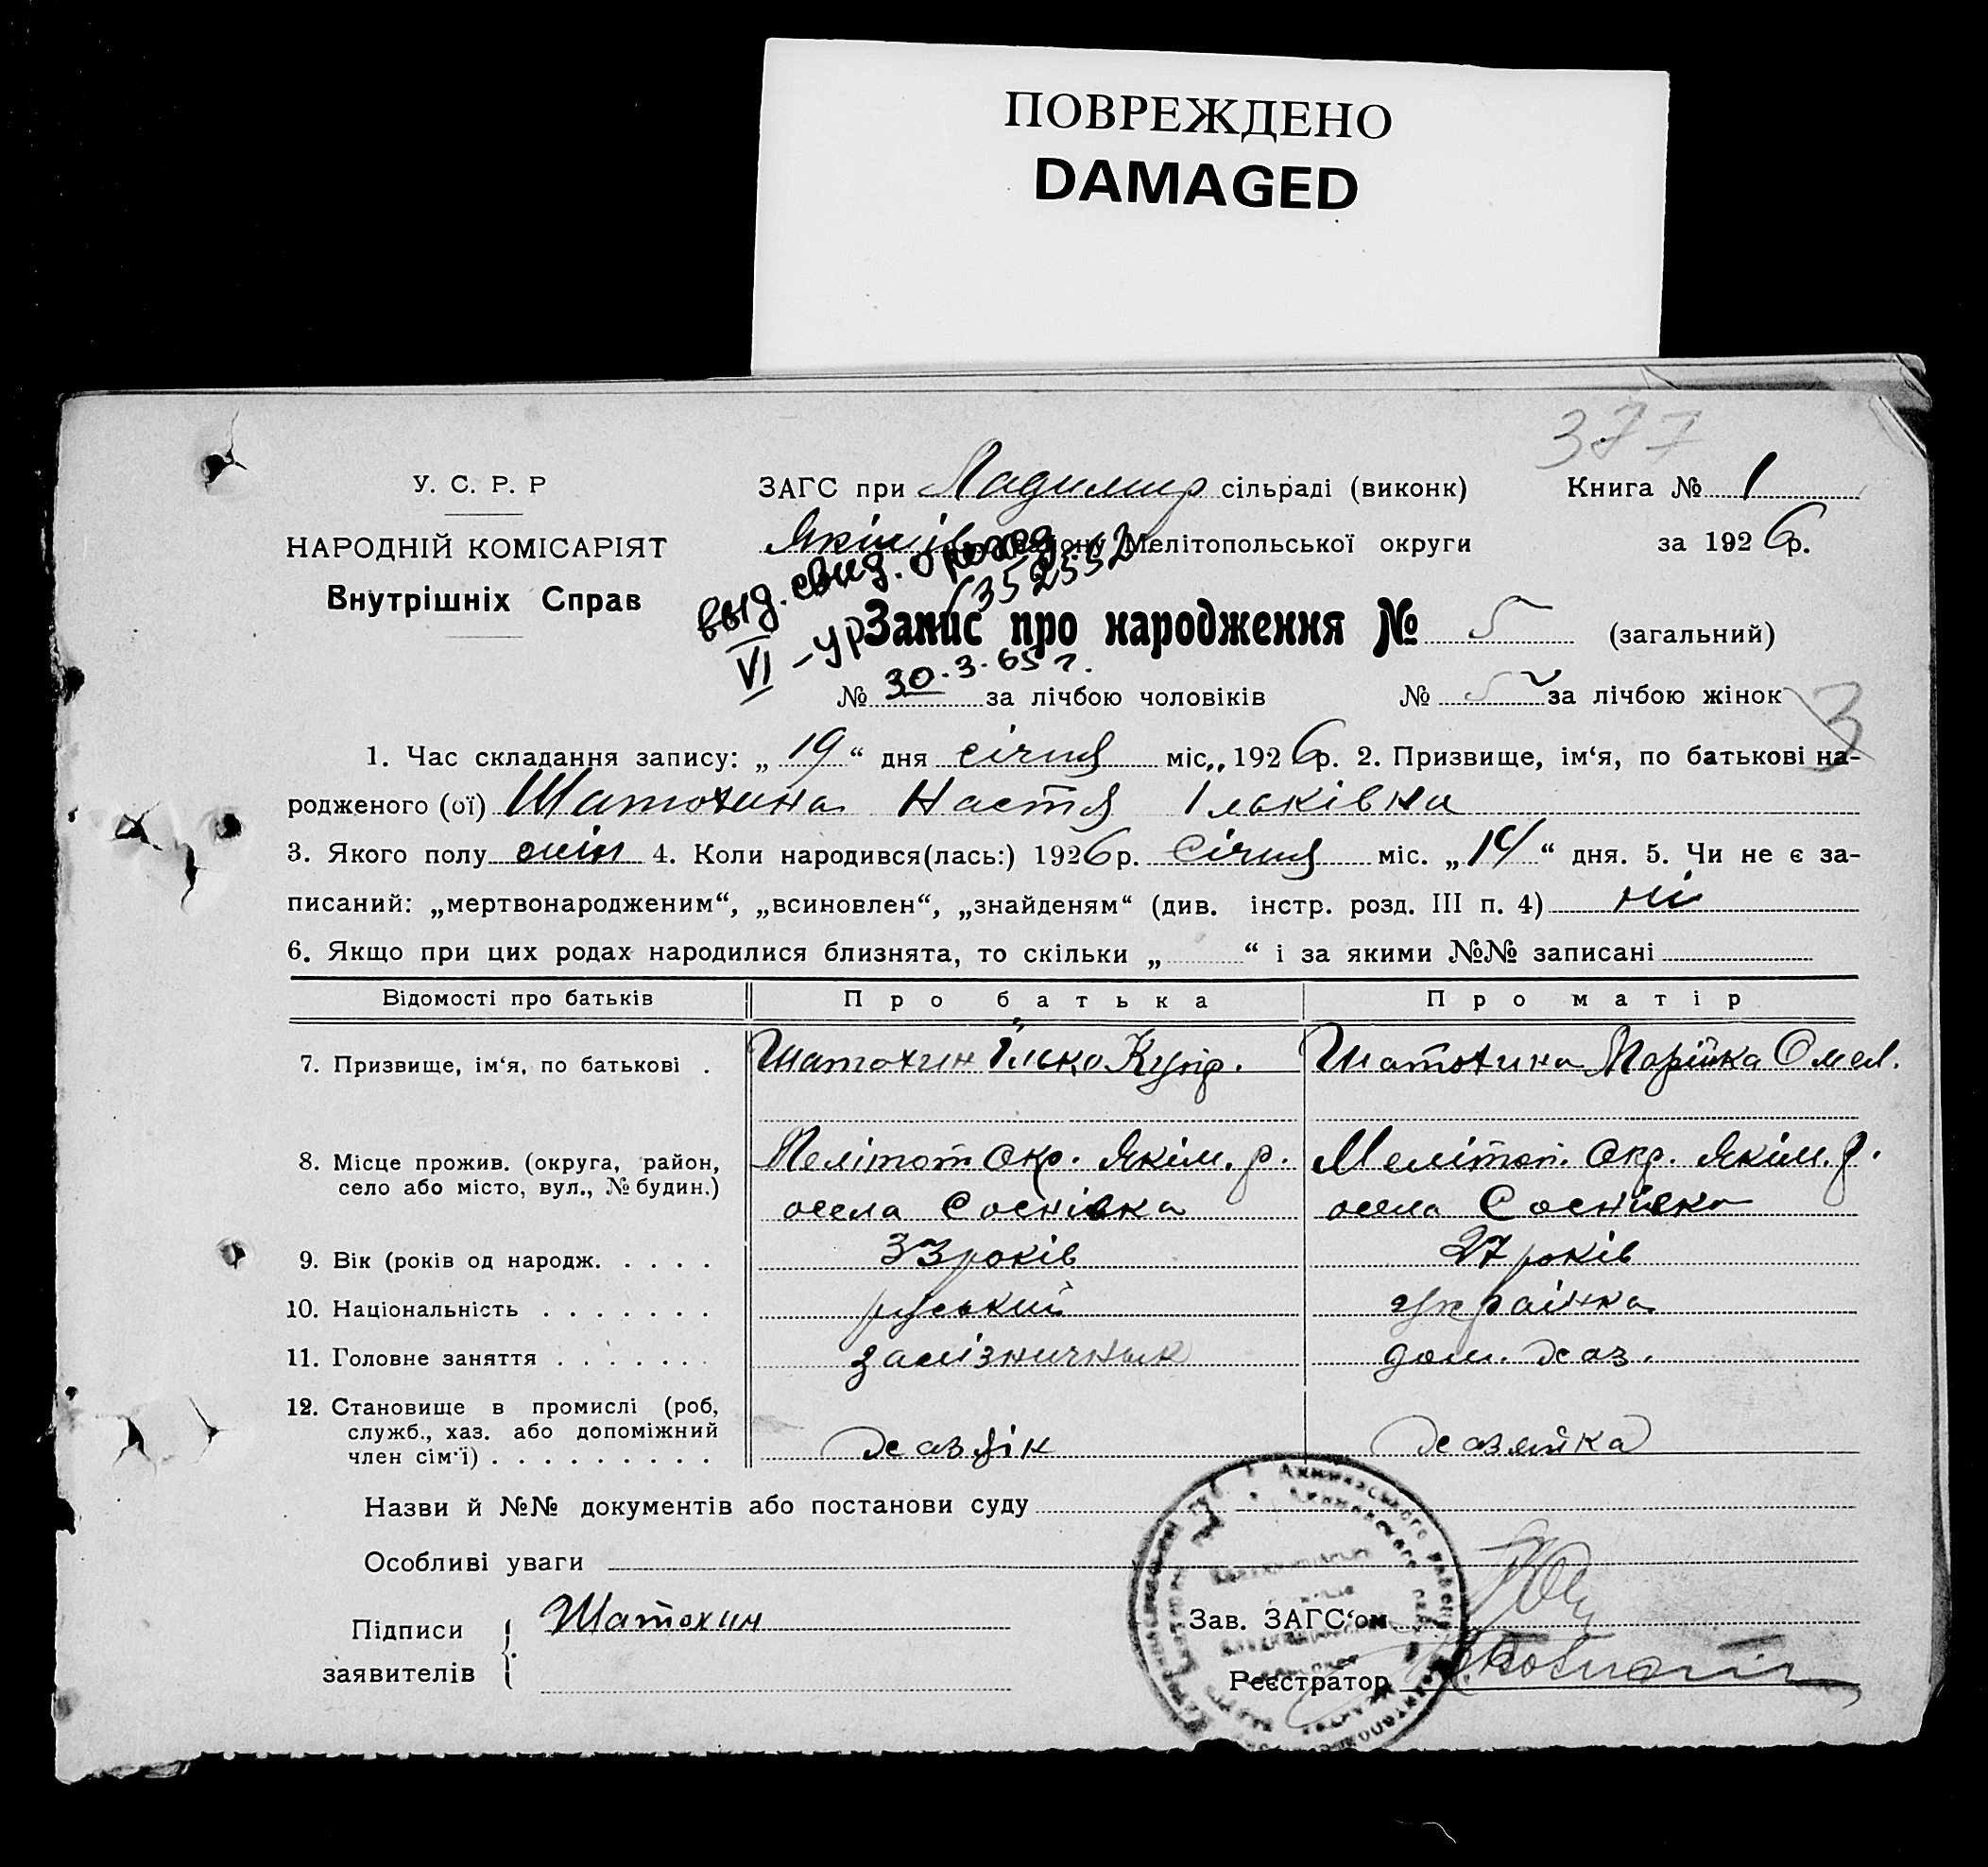 ПОВРЕЖДЕНО
DAMAGED
377
У. С. Р. Р
НАРОДНІЙ КОМІСАРІЯТ
Внутрішніх Справ
ЗАГС при Ладимир сільраді (виконк) Книга № 1
Якімів району Мелітопольської округи за 1926р.
выд. свид. о рожд.
VI – УР 352552
30.3.65 г.
Запис про народження № 5 (загальний)
№ за лічбою чоловіків № 5 за лічбою жінок
3
1. Час складання запису: „19“ дня січня міс„ 1926р. 2. Призвище, ім‘я, по батькові на-
родженого (ої) Шатохина Настя Ільківна
3. Якого полу жін 4. Коли народився(лась:) 1926р. Січня міс. „14“ дня. 5. Чи не є за-
писаний: „мертвонародженим“, „всиновлен“, „знайденям“ (див. інстр. розд. III п. 4) ні
6. Якщо при цих родах народилися близнята, то скільки „ “ і за якими №№ записані
Відомості про батьків Про батька Про матір
7. Призвище, ім‘я, по батькові . Шатохин Ілько Купр. Шатохина Марійка Омел.
8. Місце прожив. (округа, район, Мелітоп Окр. Якім. р. Мелітоп. Окр. Якім. р.
село або місто, вул., № будин.) осела Соснівка осела Соснівка
9. Вік (років од народж. . . . . 33 років 27 років
10. Національність . . . . . . . руський Українка
11. Головне заняття . . . . . . . залізничник дом. хаз.
12. Становище в промислі (роб,
служб., хаз. або допоміжний
член сім‘ї) . . . . . . . . . хазяїн хазяйка
Назви й №№ документів або постанови суду
Особливі уваги
Підписи Шатохин Зав. ЗАГС‘ом
заявителів Реєстратор